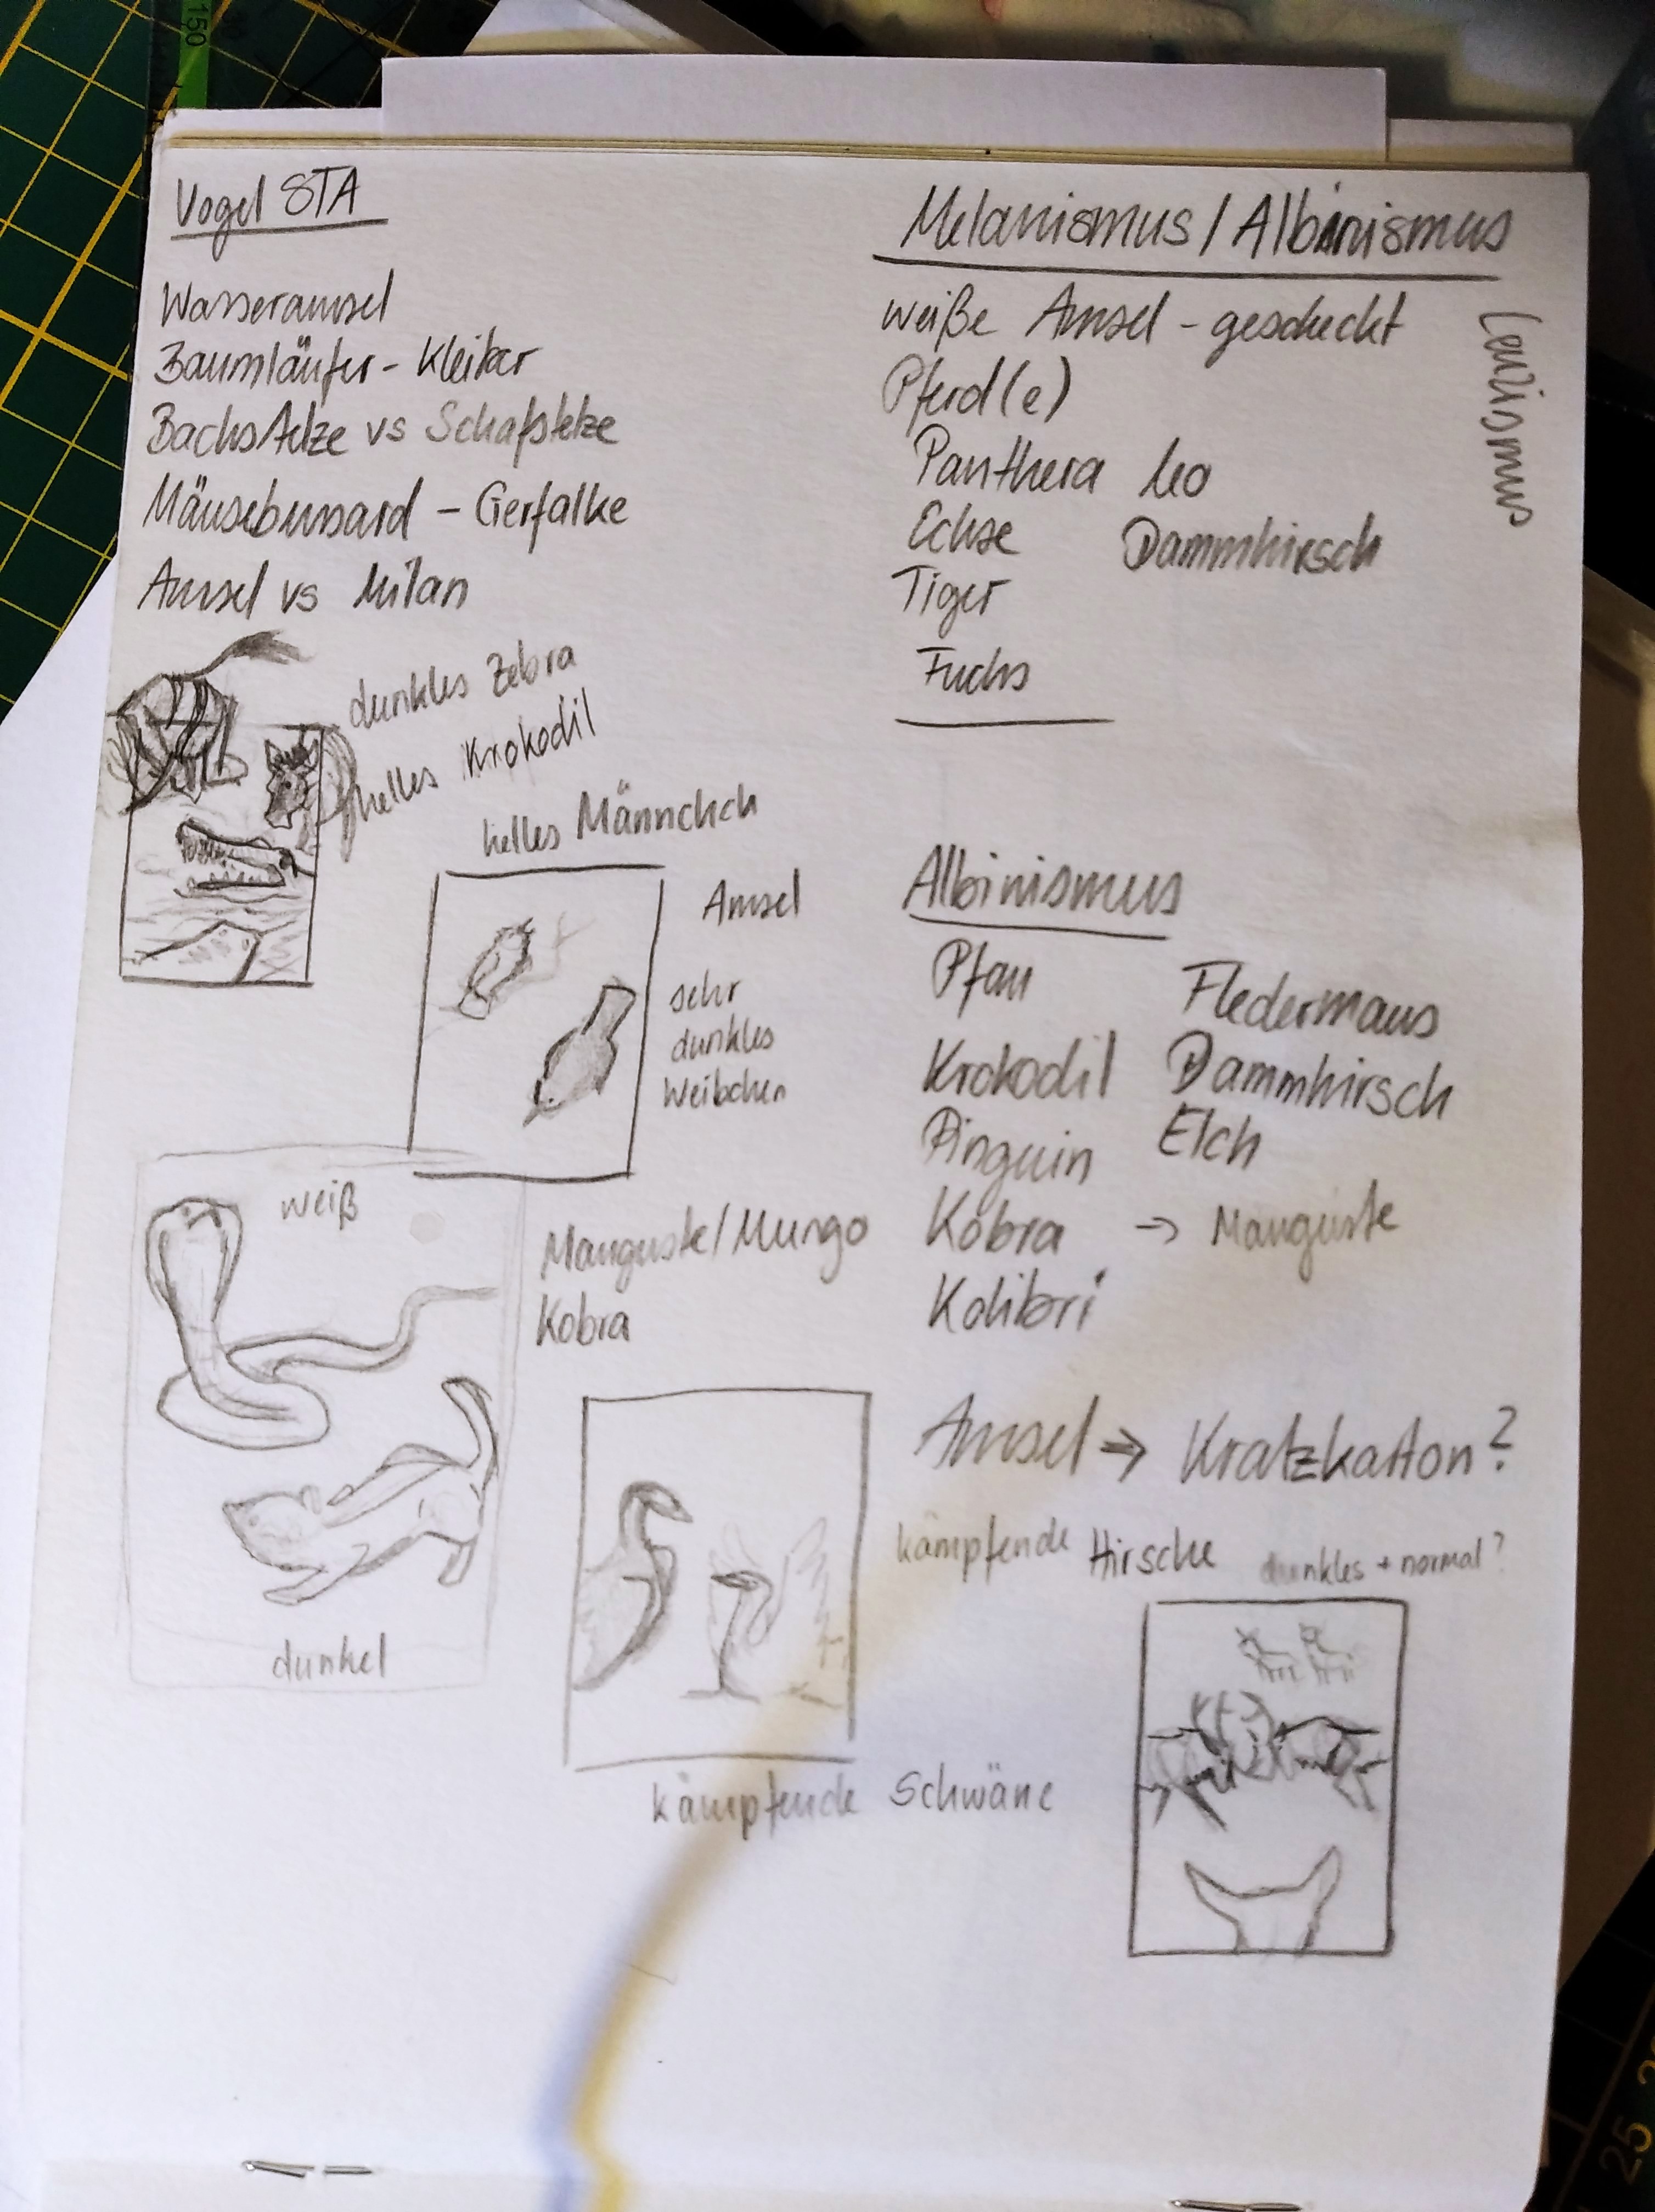 Vogel STA
Wasseramsel
Baumläufer - Kleiber
Bachstelze vs Schafstelze
Mäusebussard - Gerfalke
Amsel vs Milan
dunkles Zebra
helles Krokodil
helles Männchen
Amsel
sehr
dunkles
Weibchen
weiß
Manguste/Mungo
Kobra
dunkel
kämpfende Schwäne
Melanismus/Albinismus
Leuzismus
weiße Amsel - gescheckt
Pferd(e)
Panthera leo
Echse Dammhirsch
Tiger
Fuchs
Albinismus
Pfau Fledermaus
Krokodil Dammhirsch
Pinguin Elch
Kobra -> Manguste
Kolibri
Amsel => Kratzkarton?
kämpfende Hirsche dunkles + normal?
150
25